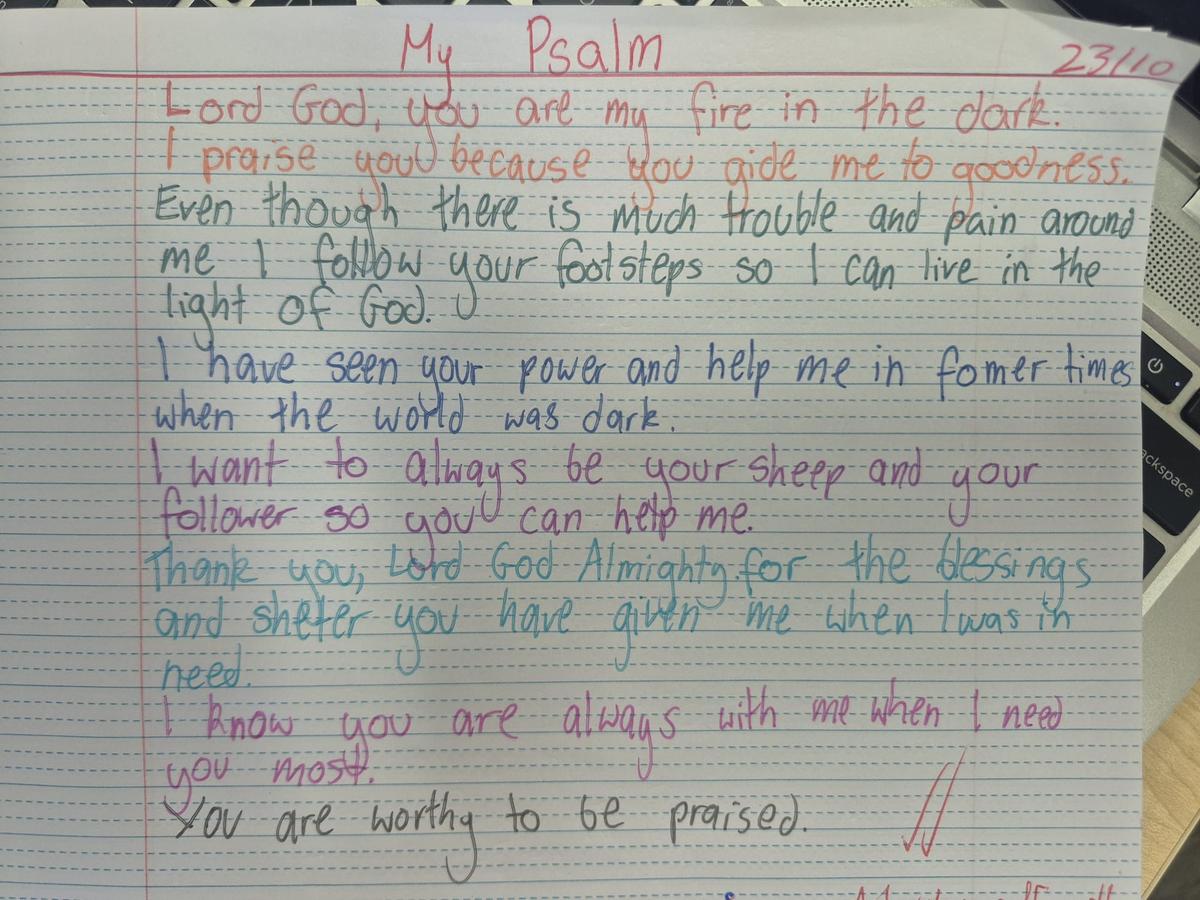 My Psalm
23/10
Lord God, you are my fire in the dark.
I praise you because you gide me to goodness.
Even though there is much trouble and pain around
me I follow your footsteps so I can live in the
light of God.
I have seen your power and help me in fomer times
when the world was dark.
I want to always be your sheep and your
follower so you can help me.
Thank you, Lord God Almighty for the blessings
and shelter you have given me when I was in
need.
I know you are always with me when I need
you most.
You are worthy to be praised.
ackspace